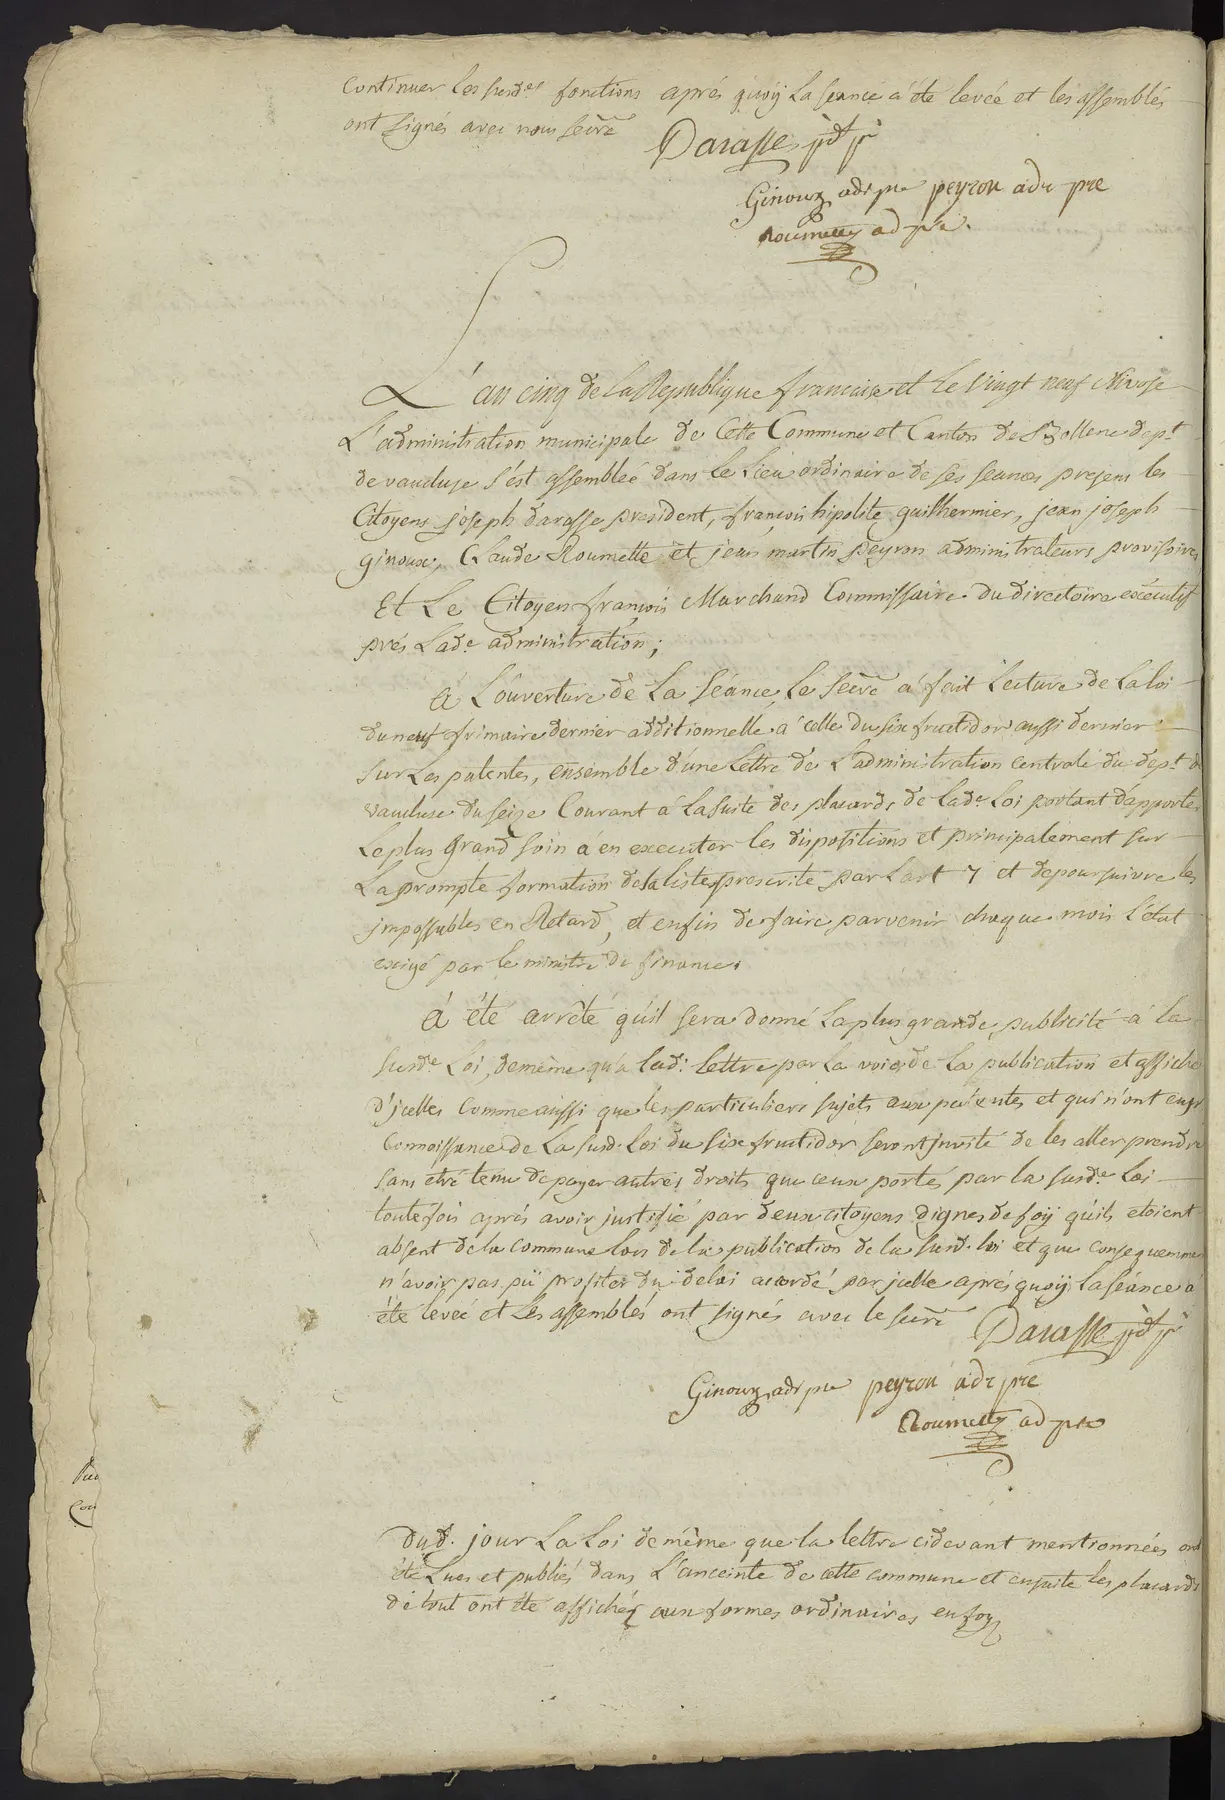 continuer les susd.es fonctions aprés quoÿ la seance a été levée et les assemblés
ont signés avec nous secre
Darasse pdt pre
Ginoux adr pre peyron adr pre
Roumette ad pre.
L'an cinq de la Republique francaise et le vingt neuf Nivose
L'administration municipale de Cette Commune et Canton de Bollene dep.t
de vaucluse s'est assembleé dans le lieu ordinaire de ses seances presens les
Citoyens joseph darasse president, françois hipolite guilhermier, jean joseph
ginoux, Claude Roumette et jean martin peyron administrateurs provisoires
Et Le Citoyen françois Marchand Commissaire du directoire exécutif
prés Lad.e administration;
A L'ouverture de La séance, le secre a fait lecture de la loi
du neuf frimaire dernier additionnelle a celle du six fructidor aussi dernier
sur les patentes, ensemble d'une lettre de L'administration centrale du dep.t de
vaucluse du seize Courant á la suite des placards de lad.e Loi portant d'apporter
le plus grand soin á en executer les dispositions et principalement sur
La prompte formation de la liste prescrite par l'art 7 et de poursuivre les
imposables en Retard, et enfin de faire parvenir chaque mois l'état
exigé par le ministre de finances.
A été arrêté qu'il sera donné la plus grande publicité á la
susd.e Loi, de même qu'a lad.e lettre par la voie de la publication et affiches
d'jcelles comme aussi que les particuliers sujets aux patentes et qui n'ont eu pr
Connoissance de la susd.e loi du six fructidor seront jnvité de les aller prendre
sans étre tenu de payer autres droits que ceux portés par la susd.e Loi
toutefois aprés avoir justifié par deux citoyens dignes de foÿ qu'ils etoient
absent de la commune lors de la publication de la susd.e loi et que consequemment
n'avoir pas pü profiter du delai accordé par jcelle aprés quoÿ la séance a
été levée et les assemblés ont signés avec le secre
Darasse pdt pre
Ginoux adr pre peyron adr pre
Roumette ad pre
Dud. jour La Loi de même que la lettre cidevant mentionnées ont
été lues et publiés dans L'anceinte de cette commune et ensuite les placards
de tout ont été affichés aux formes ordinaires en foy